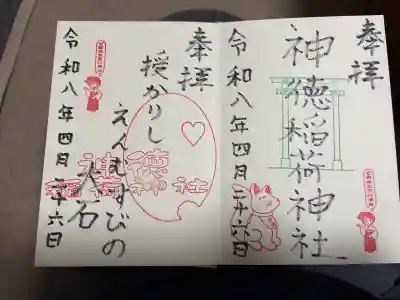 奉拝
神徳稲荷神社
令和八年四月二十六日
奉拝
授かりし
えんむすびの
大石
神徳稲荷神社
令和八年四月二十六日